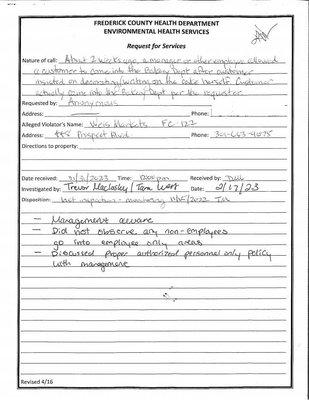 FREDERICK COUNTY HEALTH DEPARTMENT
ENVIRONMENTAL HEALTH SERVICES
Request for Services
Nature of call: About 2 weeks ago, a manager or other employee allowed
a customer to come into the Bakery Dept after customer
insisted on decorating/writing on the cake herself. Customer
actually came into the Bakery Dept per the requester.
Requested by: Anonymous
Address: Phone:
Alleged Violator's Name: Weis Markets FC 122
Address: Prospect Blvd. Phone:
Directions to property:
Date received: Time: Received by:
Investigated by: Trevor / Tom West Date: 2/17/23
Disposition: last inspection - monitoring
— Management aware
— Did not observe any non-employees
go into employee only areas
— Discussed proper authorized personnel only policy
with management
Revised 4/16